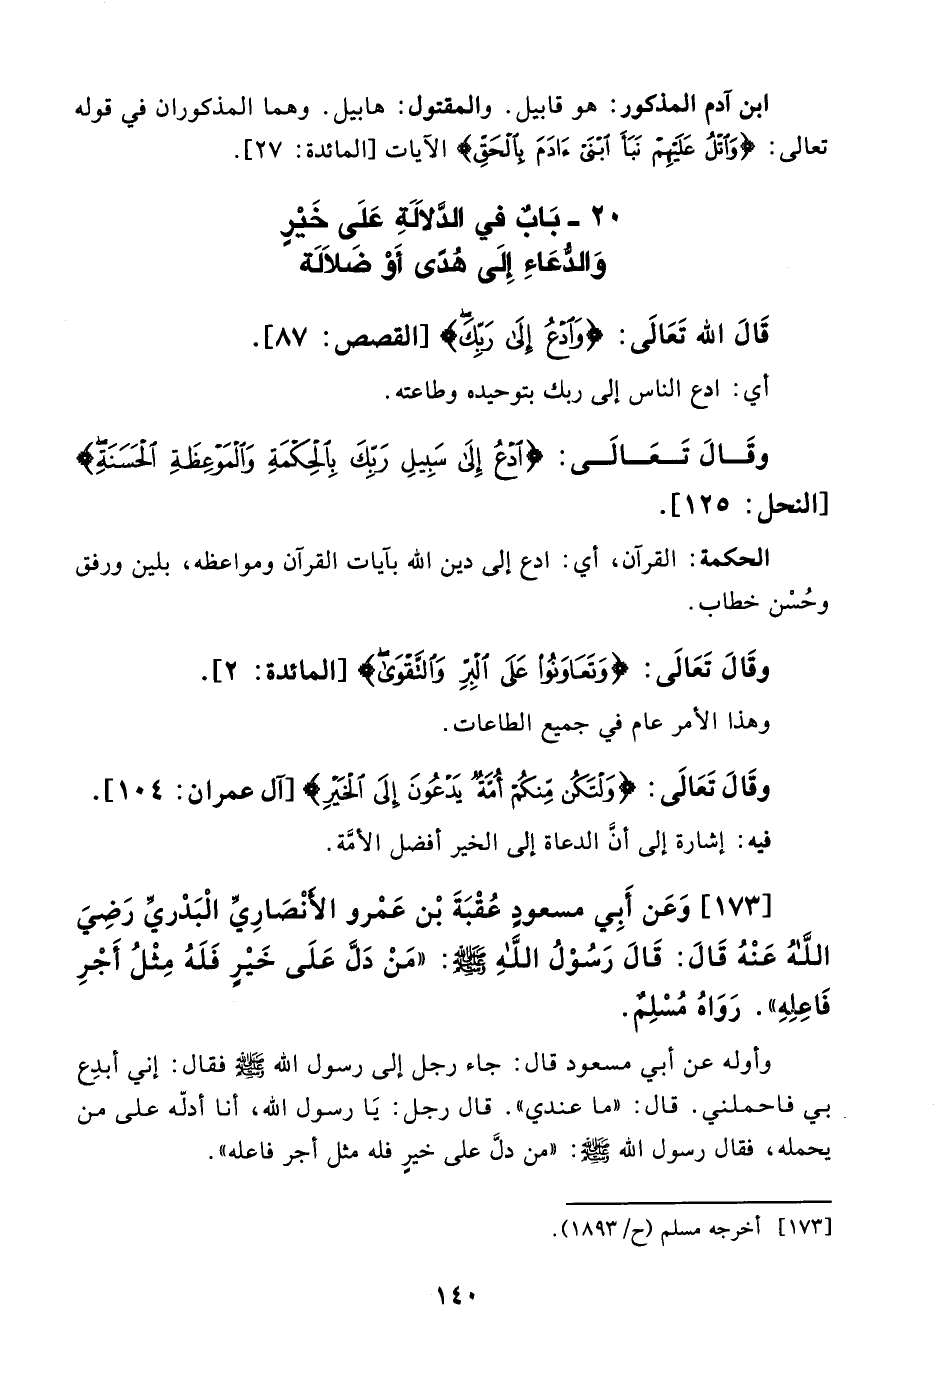 ابن آدم المذكور: هو قابيل. والمقتول: هابيل. وهما المذكوران في قوله
تعالى: ﴿وَٱتۡلُ عَلَيۡهِمۡ نَبَأَ ٱبۡنَيۡ ءَادَمَ بِٱلۡحَقِّ﴾ الآيات [المائدة: ٢٧].
٢٠ - بَابٌ في الدَّلاَلَةِ عَلَى خَيْرٍ
وَالدُّعَاءِ إِلَى هُدًى أَوْ ضَلاَلَة
قَالَ الله تَعَالَى: ﴿وَٱدۡعُ إِلَىٰ رَبِّكَۖ﴾ [القصص: ٨٧].
أي: ادع الناس إلى ربك بتوحيده وطاعته.
وقَـالَ تَـعَـالَـى: ﴿ٱدۡعُ إِلَىٰ سَبِيلِ رَبِّكَ بِٱلۡحِكۡمَةِ وَٱلۡمَوۡعِظَةِ ٱلۡحَسَنَةِۖ﴾
[النحل: ١٢٥].
الحكمة: القرآن، أي: ادع إلى دين الله بآيات القرآن ومواعظه، بلين ورفق
وحُسْن خطاب.
وقَالَ تَعَالَى: ﴿وَتَعَاوَنُواْ عَلَى ٱلۡبِرِّ وَٱلتَّقۡوَىٰۖ﴾ [المائدة: ٢].
وهذا الأمر عام في جميع الطاعات.
وقَالَ تَعَالَى: ﴿وَلۡتَكُن مِّنكُمۡ أُمَّةٌ يَدۡعُونَ إِلَى ٱلۡخَيۡرِ﴾ [آل عمران: ١٠٤].
فيه: إشارة إلى أنَّ الدعاة إلى الخير أفضل الأمَّة.
[١٧٣] وَعَن أَبِي مسعودٍ عُقْبَةَ بْن عَمْرو الأَنْصَارِيِّ الْبَدْرِيِّ رَضِيَ
اللَّهُ عَنْهُ قَالَ: قَالَ رَسُوْلُ اللَّهِ ﷺ: «مَنْ دَلَّ عَلَى خَيْرٍ فَلَهُ مِثْلُ أَجْرِ
فَاعِلِهِ». رَوَاهُ مُسْلِمٌ.
وأوله عن أبي مسعود قال: جاء رجل إلى رسول الله ﷺ فقال: إني أبدِع
بي فاحملني. قال: «ما عندي». قال رجل: يَا رسول الله، أنا أدلّه على من
يحمله، فقال رسول الله ﷺ: «من دلَّ على خيرٍ فله مثل أجر فاعله».
[١٧٣] أخرجه مسلم (ح/ ١٨٩٣).
١٤٠